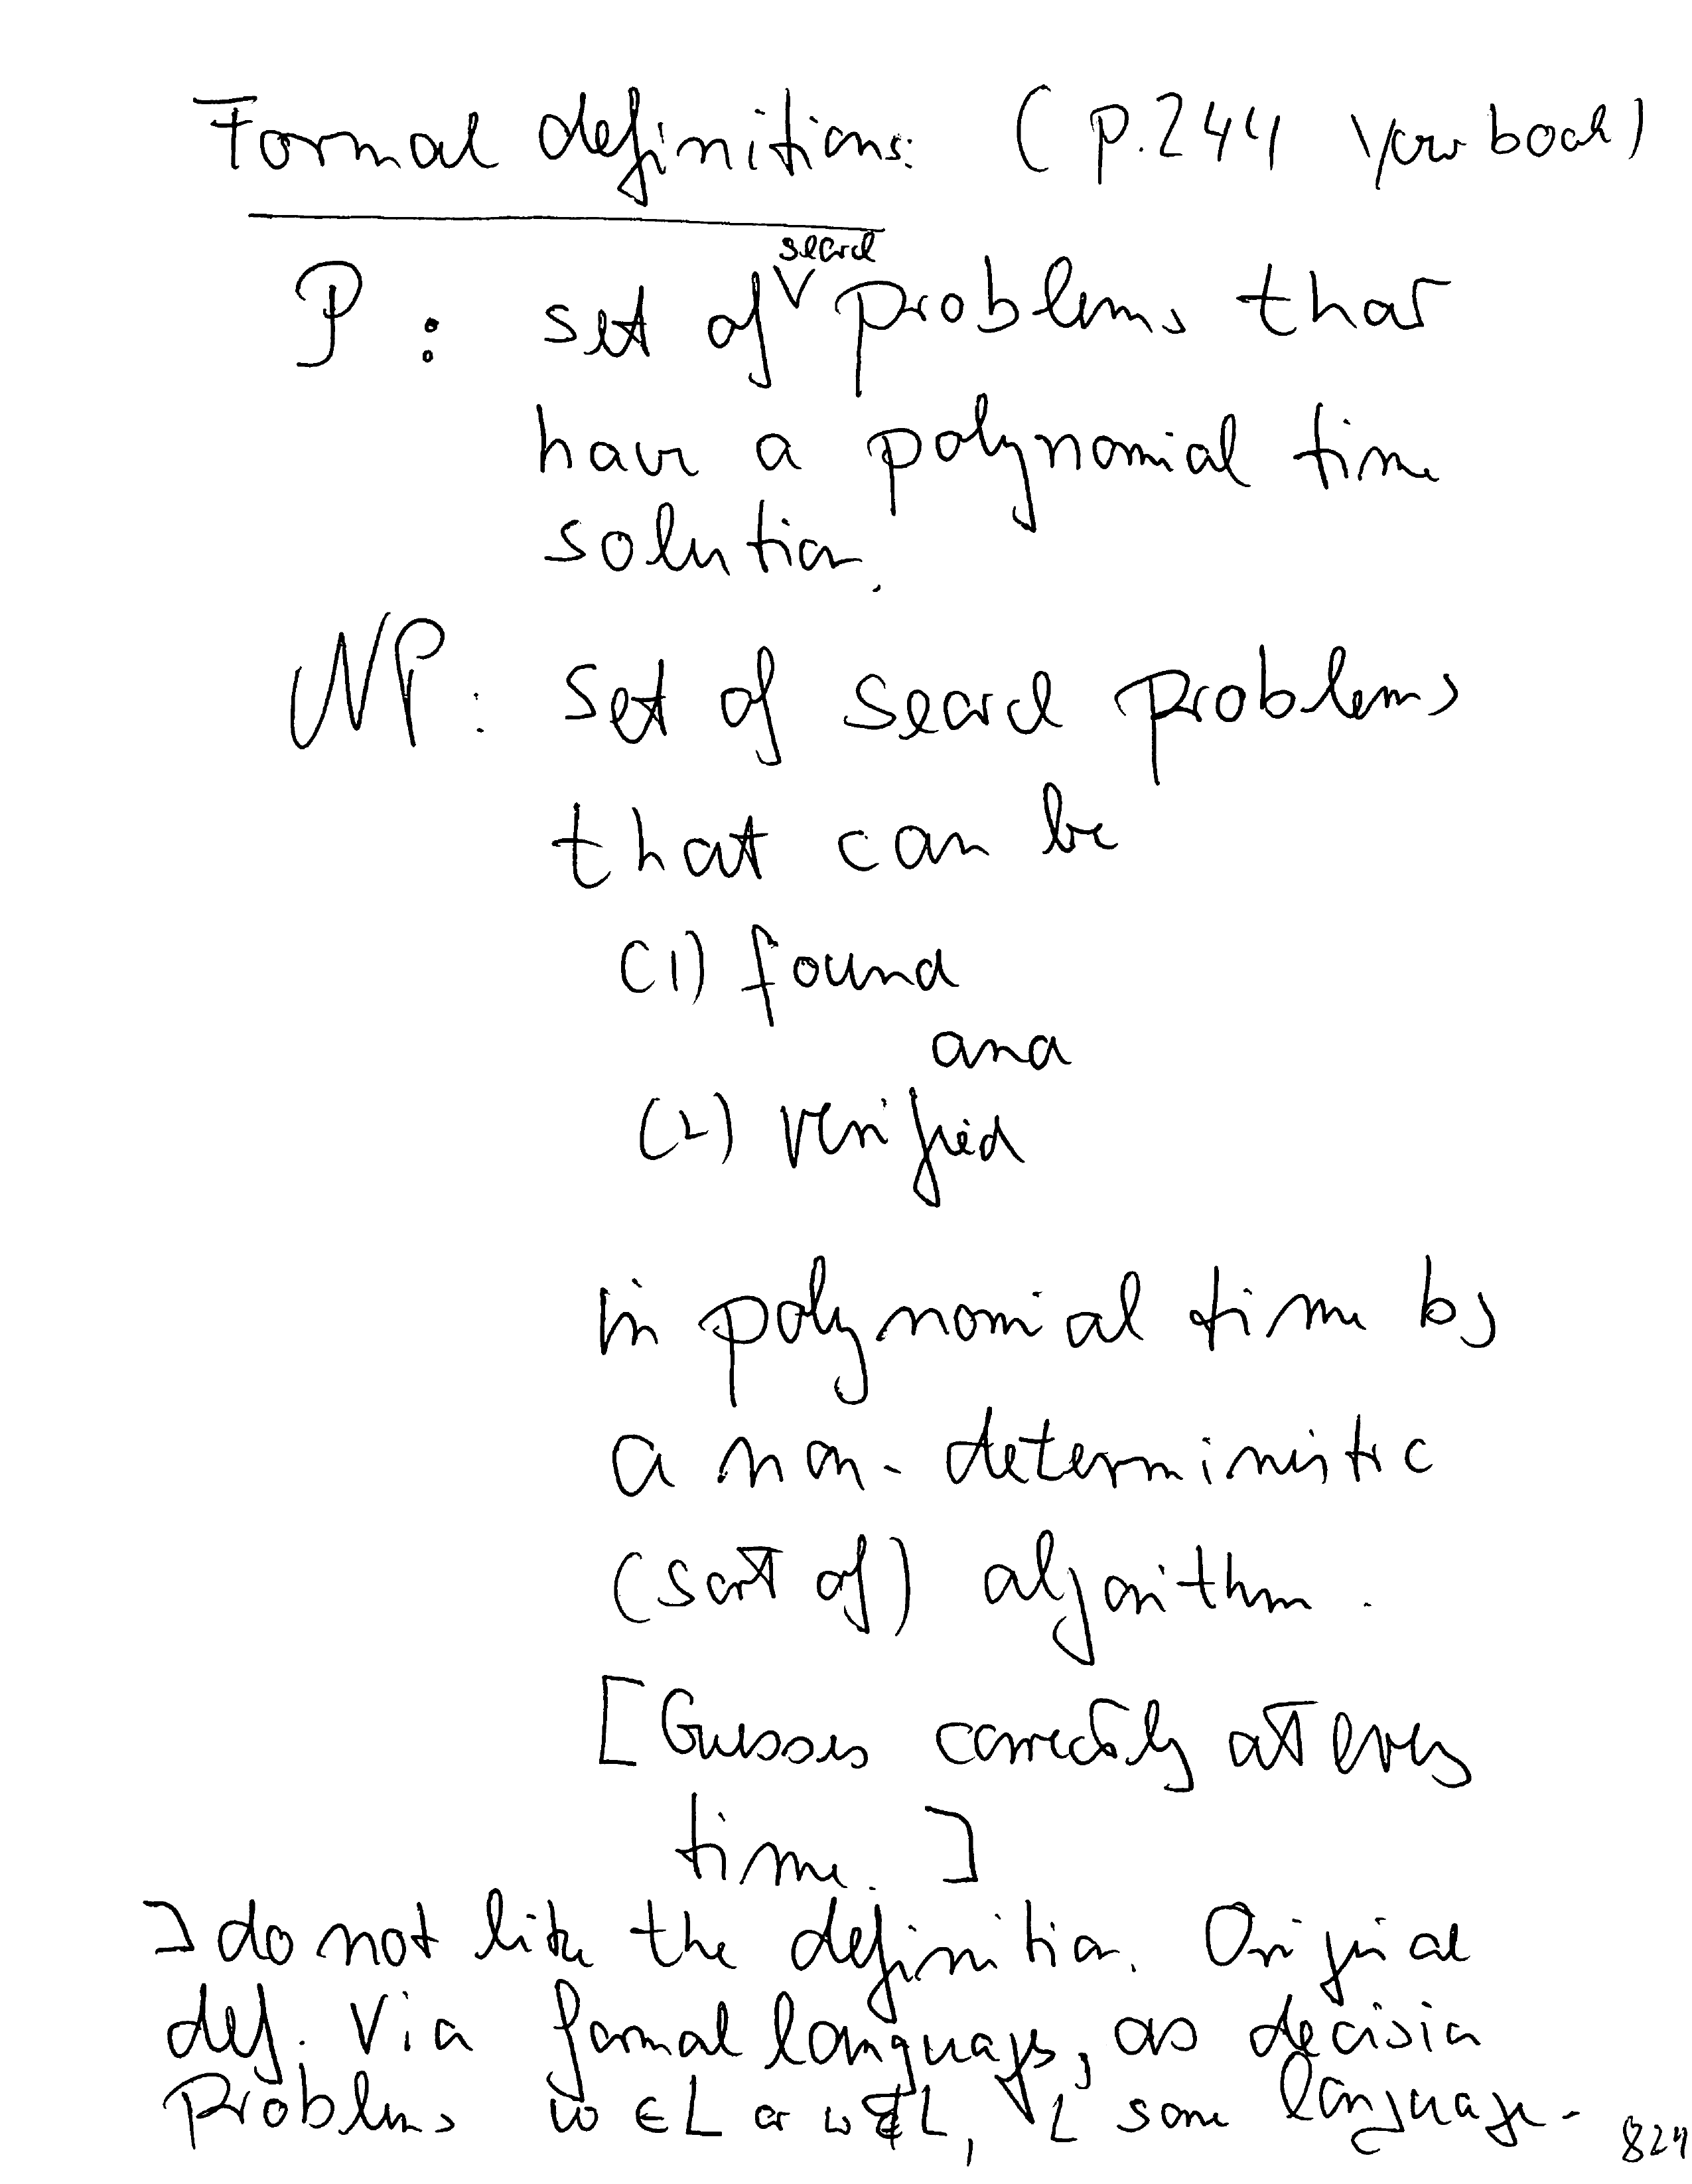 Formal definitions: (p.244 your book)
search
P: set of problems that
have a polynomial time
solution.
NP: set of search problems
that can be
(1) found
and
(2) verified
in polynomial time by
a non-deterministic
(sort of) algorithm.
[Guesses correctly at every
time.]
I do not like the definition. Original
def. via formal languages, as decision
problems w ∈ L or w ∉ L, L some language.